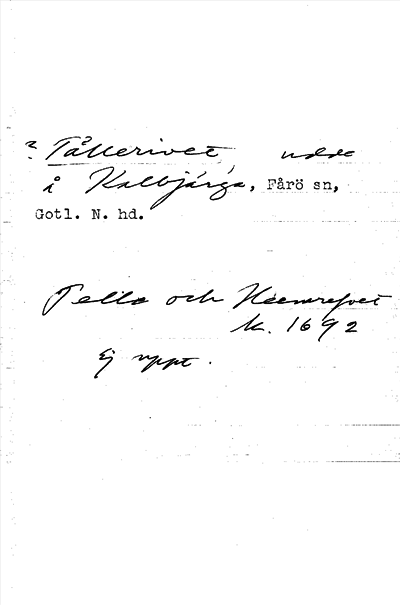 ? Tållerivet, udde
å Kalbjärga, Fårö sn,
Gotl. N. hd.
Tello och Heemrefvet
k. 1692
Ej uppt.